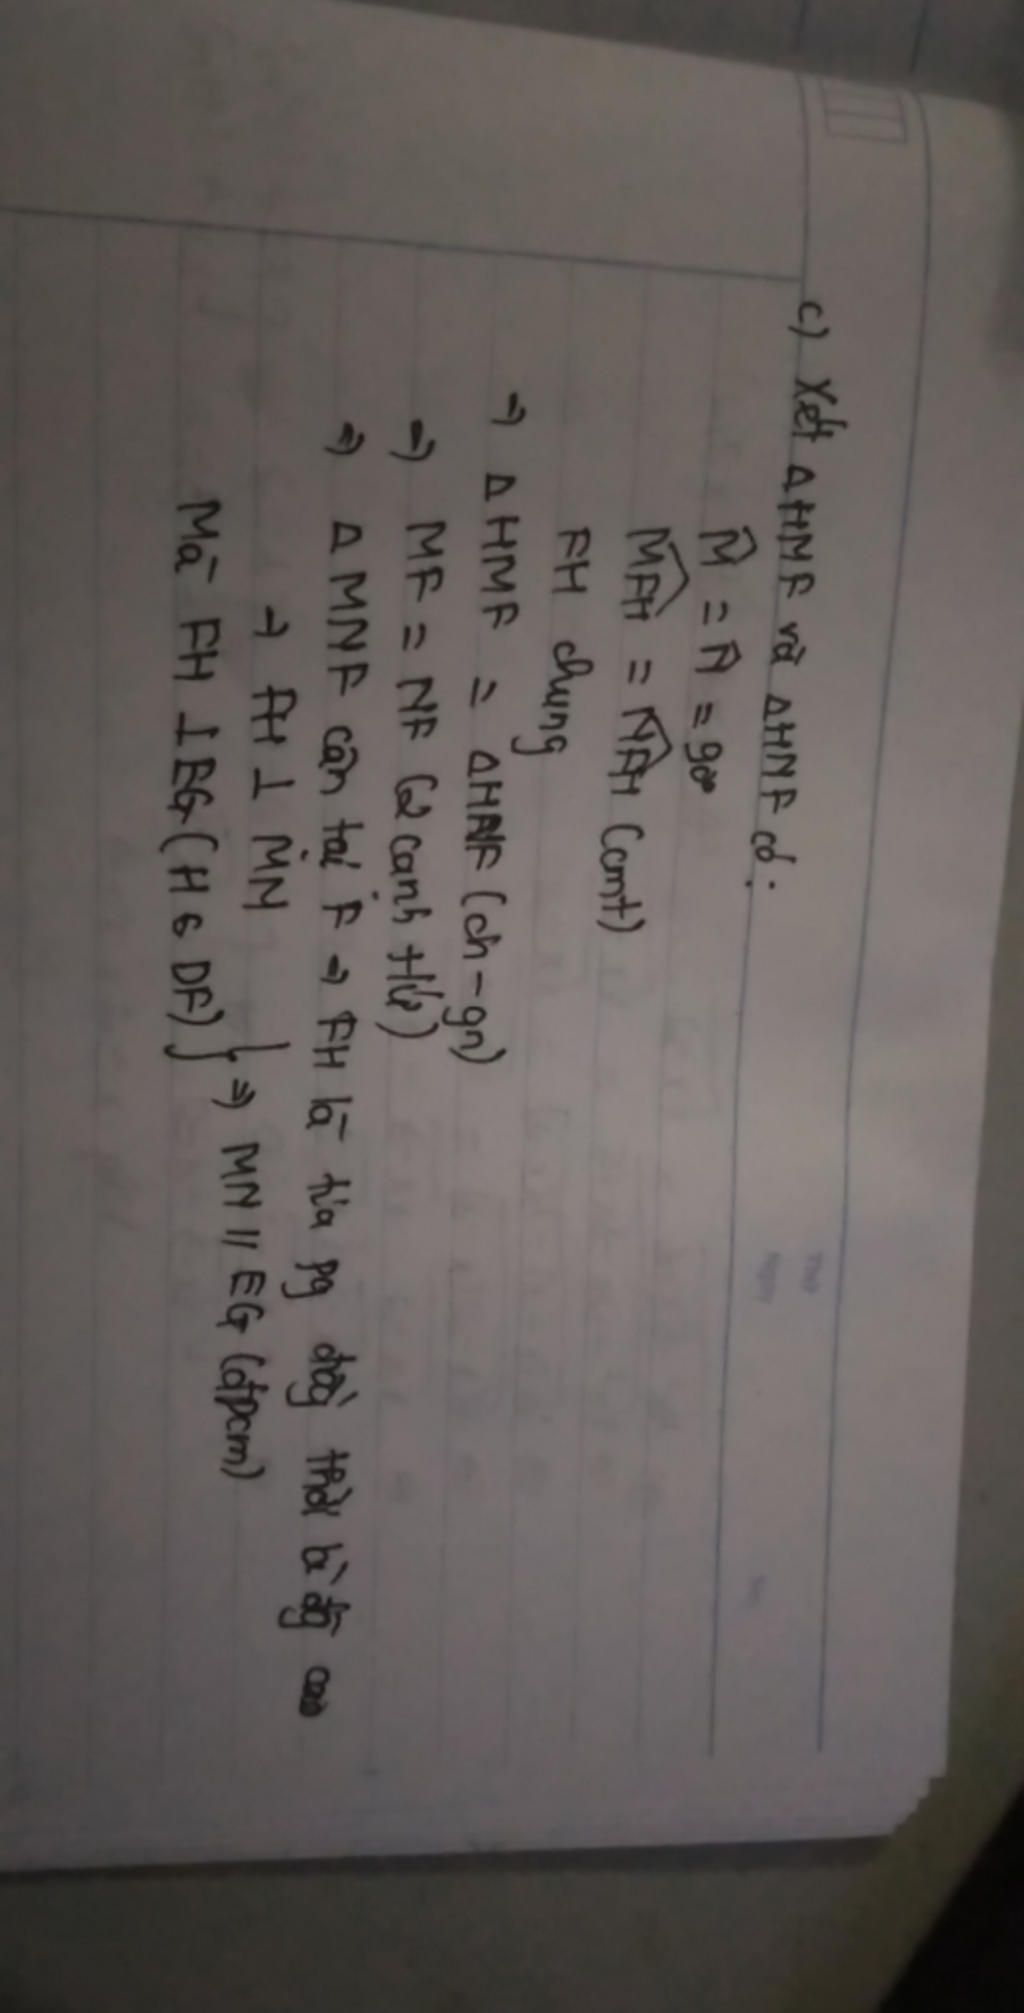 c) Xét ΔHMF và ΔHNF có:
M̂ = N̂ = 90°
MFH = NFH (cmt)
FH chung
⇒ ΔHMF = ΔHNF (ch-gn)
⇒ MF = NF (2 cạnh t/ứ)
⇒ ΔMNF cân tại F ⇒ FH là tia pg đồng thời là đg cao
⇒ FH ⊥ MN
Mà FH ⊥ EG (H ∈ DF) } ⇒ MN // EG (đpcm)